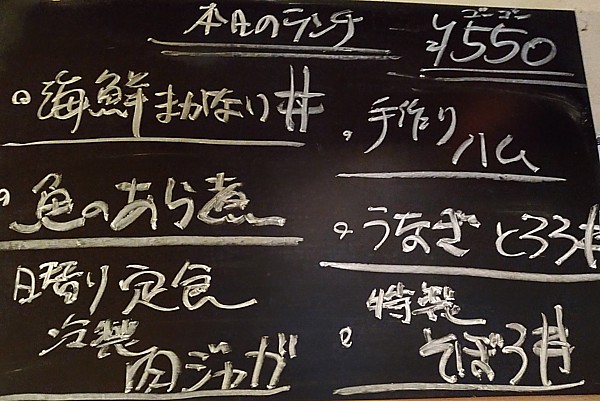 本日のランチ
ゴーゴー
¥550
海鮮まかない丼
魚のあら煮
日替り定食
冷製
肉ジャガ
手作り
ハム
うなぎとろろ丼
特製
そぼろ丼